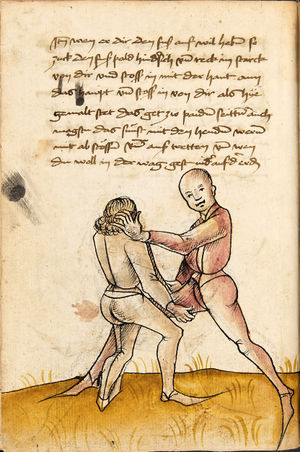 Itm wen er dir den fuß auf wil heben so
zuck den fuß pald hindersich und reck in starck
von dir und stoß in mit der hant ann
das haupt und stoß in von dir als hie
gemalt stet das get zu paiden seitten auch
magst das sunst mit den henden weren
mit ab stossen und auf tretten und wen
du woll in der wag gest auf erden